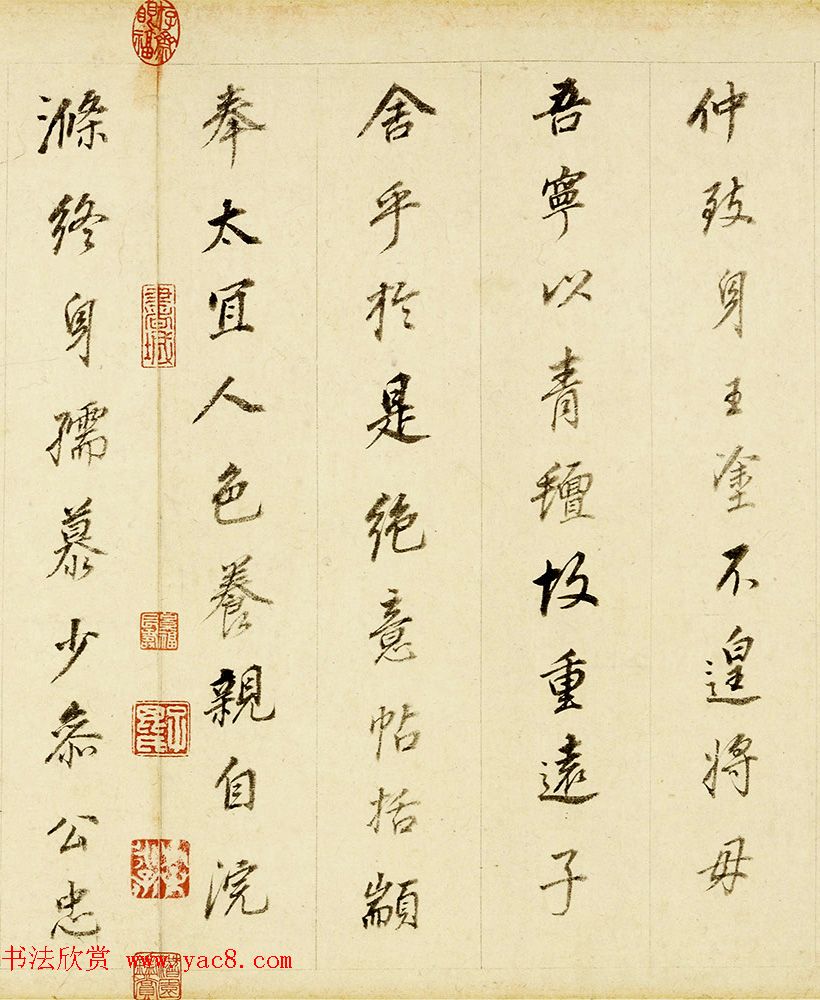 仲致身王塗不遑將母
吾寧以青氊故重遠子
舍乎於是絶意帖括顓
奉太宜人色養親自浣
滌終身孺慕少叅公忠
书法欣赏 www.yac8.com